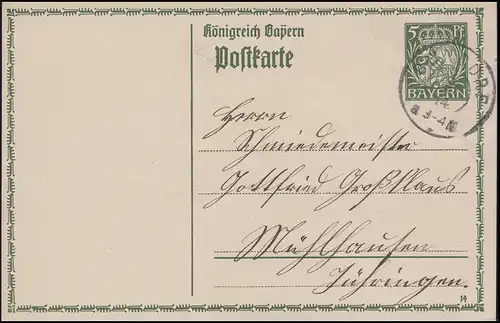 Königreich Bayern
Postkarte
5 Pf
BAYERN
14
8 3-4 N
Herrn
Schmiedemeister
Gottfried Großklaus
Mühlhausen
Thüringen.
14